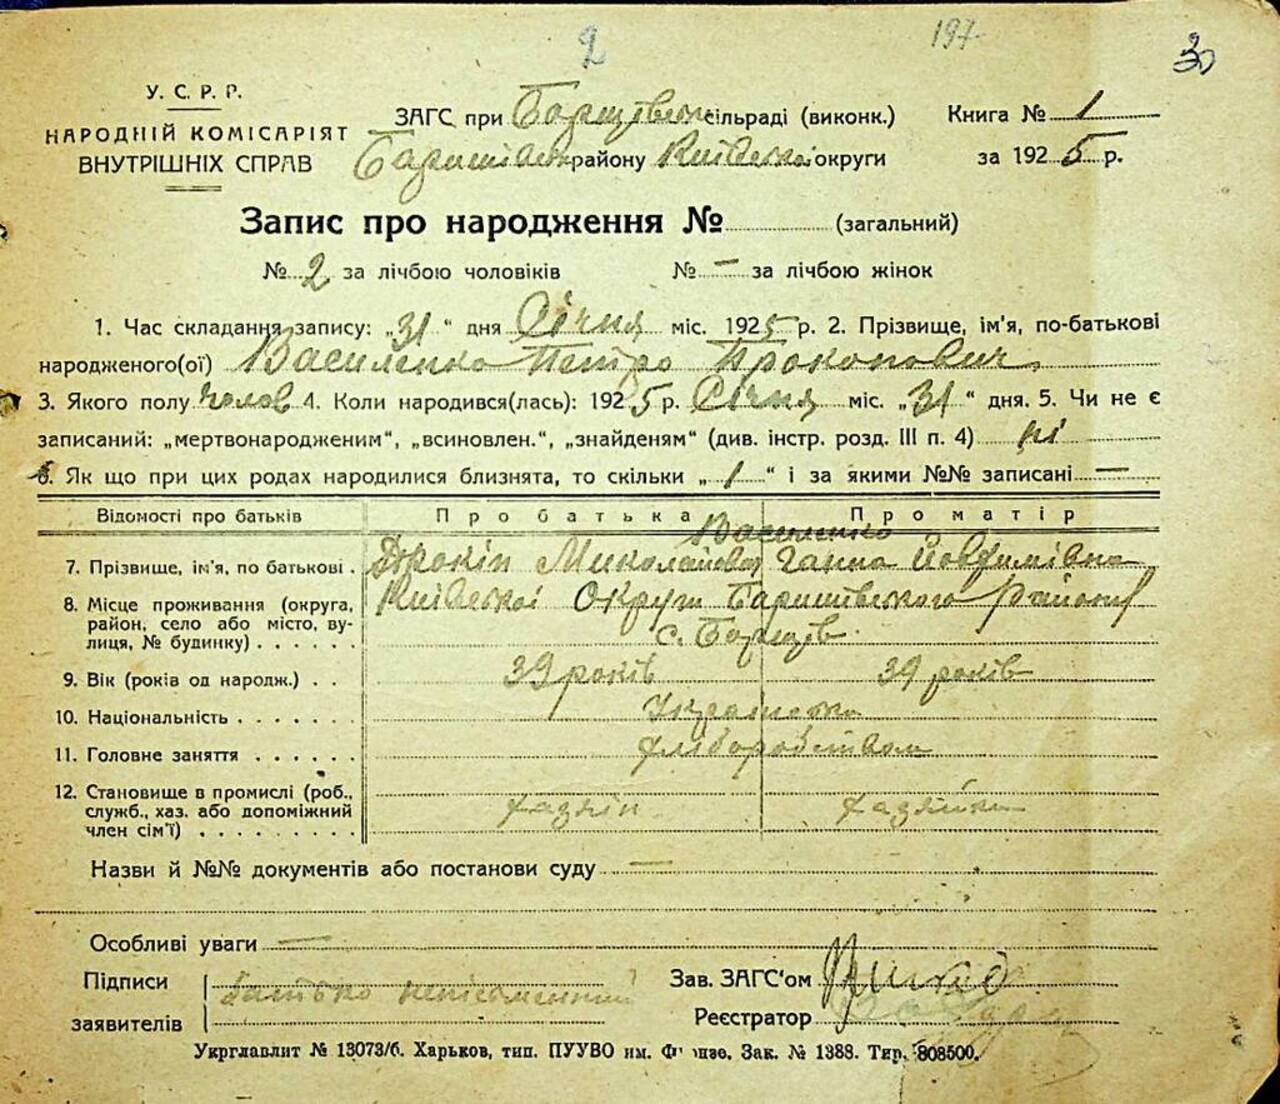 2
197
30
У. С. Р. Р.
НАРОДНІЙ КОМІСАРІЯТ
ВНУТРІШНІХ СПРАВ
ЗАГС при Борщівськ. сільраді (виконк.)
Баришівськ. району Київської округи
Книга № 1
за 1925 р.
Запис про народження № (загальний)
№ 2 за лічбою чоловіків № — за лічбою жінок
1. Час складання запису: „31“ дня Січня міс. 1925 р. 2. Прізвище, ім'я, по-батькові
народженого(ої) Василенко Петро Прокопович
3. Якого полу чолов 4. Коли народився(лась): 1925 р. Січня міс. „31“ дня. 5. Чи не є
записаний: „мертвонародженим“, „всиновлен.“, „знайденям“ (див. інстр. розд. III п. 4) ні
6. Як що при цих родах народилися близнята, то скільки „1“ і за якими №№ записані —
Відомості про батьків Про батька Про матір
Василенко
7. Прізвище, ім'я, по батькові . Прокіп Миколайович Ганна Йовхимівна
8. Місце проживання (округа, Київської Округи Баришівського району
район, село або місто, ву-
лиця, № будинку) . . . . . . с. Борщів
9. Вік (років од народж.) . . 39 років 39 років
10. Національність . . . . . . . Українська
11. Головне заняття . . . . . . хліборобством
12. Становище в промислі (роб.,
служб., хаз. або допоміжний хазяїн хазяйка
член сім'ї) . . . . . . . . .
Назви й №№ документів або постанови суду —
Особливі уваги —
Підписи
заявителів
батько неписьменний
Зав. ЗАГС'ом
Реєстратор
Укрглавлит № 13073/б. Харьков, тип. ПУУВО им. Фрунзе. Зак. № 1388. Тир. 808500.